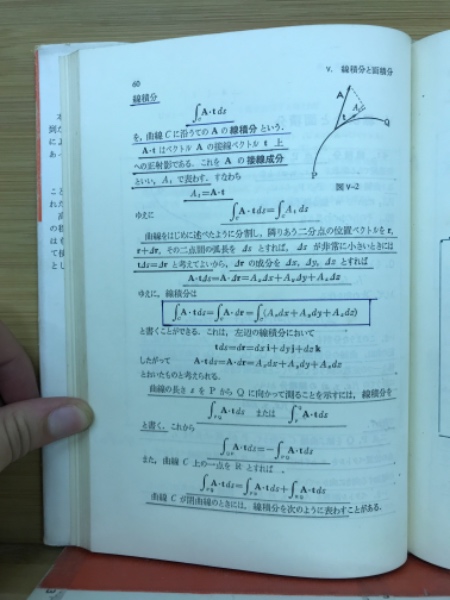 60
V. 線積分と面積分
線積分
∫_C A·t ds
を, 曲線 C に沿うての A の線積分 という.
A·t はベクトル A の接線ベクトル t 上
への正射影である. これを A の接線成分
といい, A_t で表わす. すなわち
A_t=A·t
ゆえに ∫_C A·t ds=∫_C A_t ds
A
A_t
t
Q
P
図 V-2
曲線をはじめに述べたように分割し, 隣りあう二分点の位置ベクトルを r,
r+Δr, その二点間の弧長を Δs とすれば, Δs が非常に小さいときには
tΔs=Δr と考えてよいから, Δr の成分を Δx, Δy, Δz とすれば
A·tΔs=A·Δr=A_xΔx+A_yΔy+A_zΔz
ゆえに, 線積分は
∫_C A·t ds=∫_C A·dr=∫_C(A_x dx+A_y dy+A_z dz)
と書くことができる. これは, 左辺の線積分において
t ds=dr=dx i+dy j+dz k
したがって A·t ds=A·dr=A_x dx+A_y dy+A_z dz
とおいたものと考えられる.
曲線の長さ s を P から Q に向かって測ることを示すには, 線積分を
∫_PQ A·t ds または ∫_P^Q A·t ds
と書く. これから
∫_QP A·t ds=−∫_PQ A·t ds
また, 曲線 C 上の一点を R とすれば
∫_PQ A·t ds=∫_PR A·t ds+∫_RQ A·t ds
曲線 C が閉曲線のときには, 線積分を次のように表わすことがある.